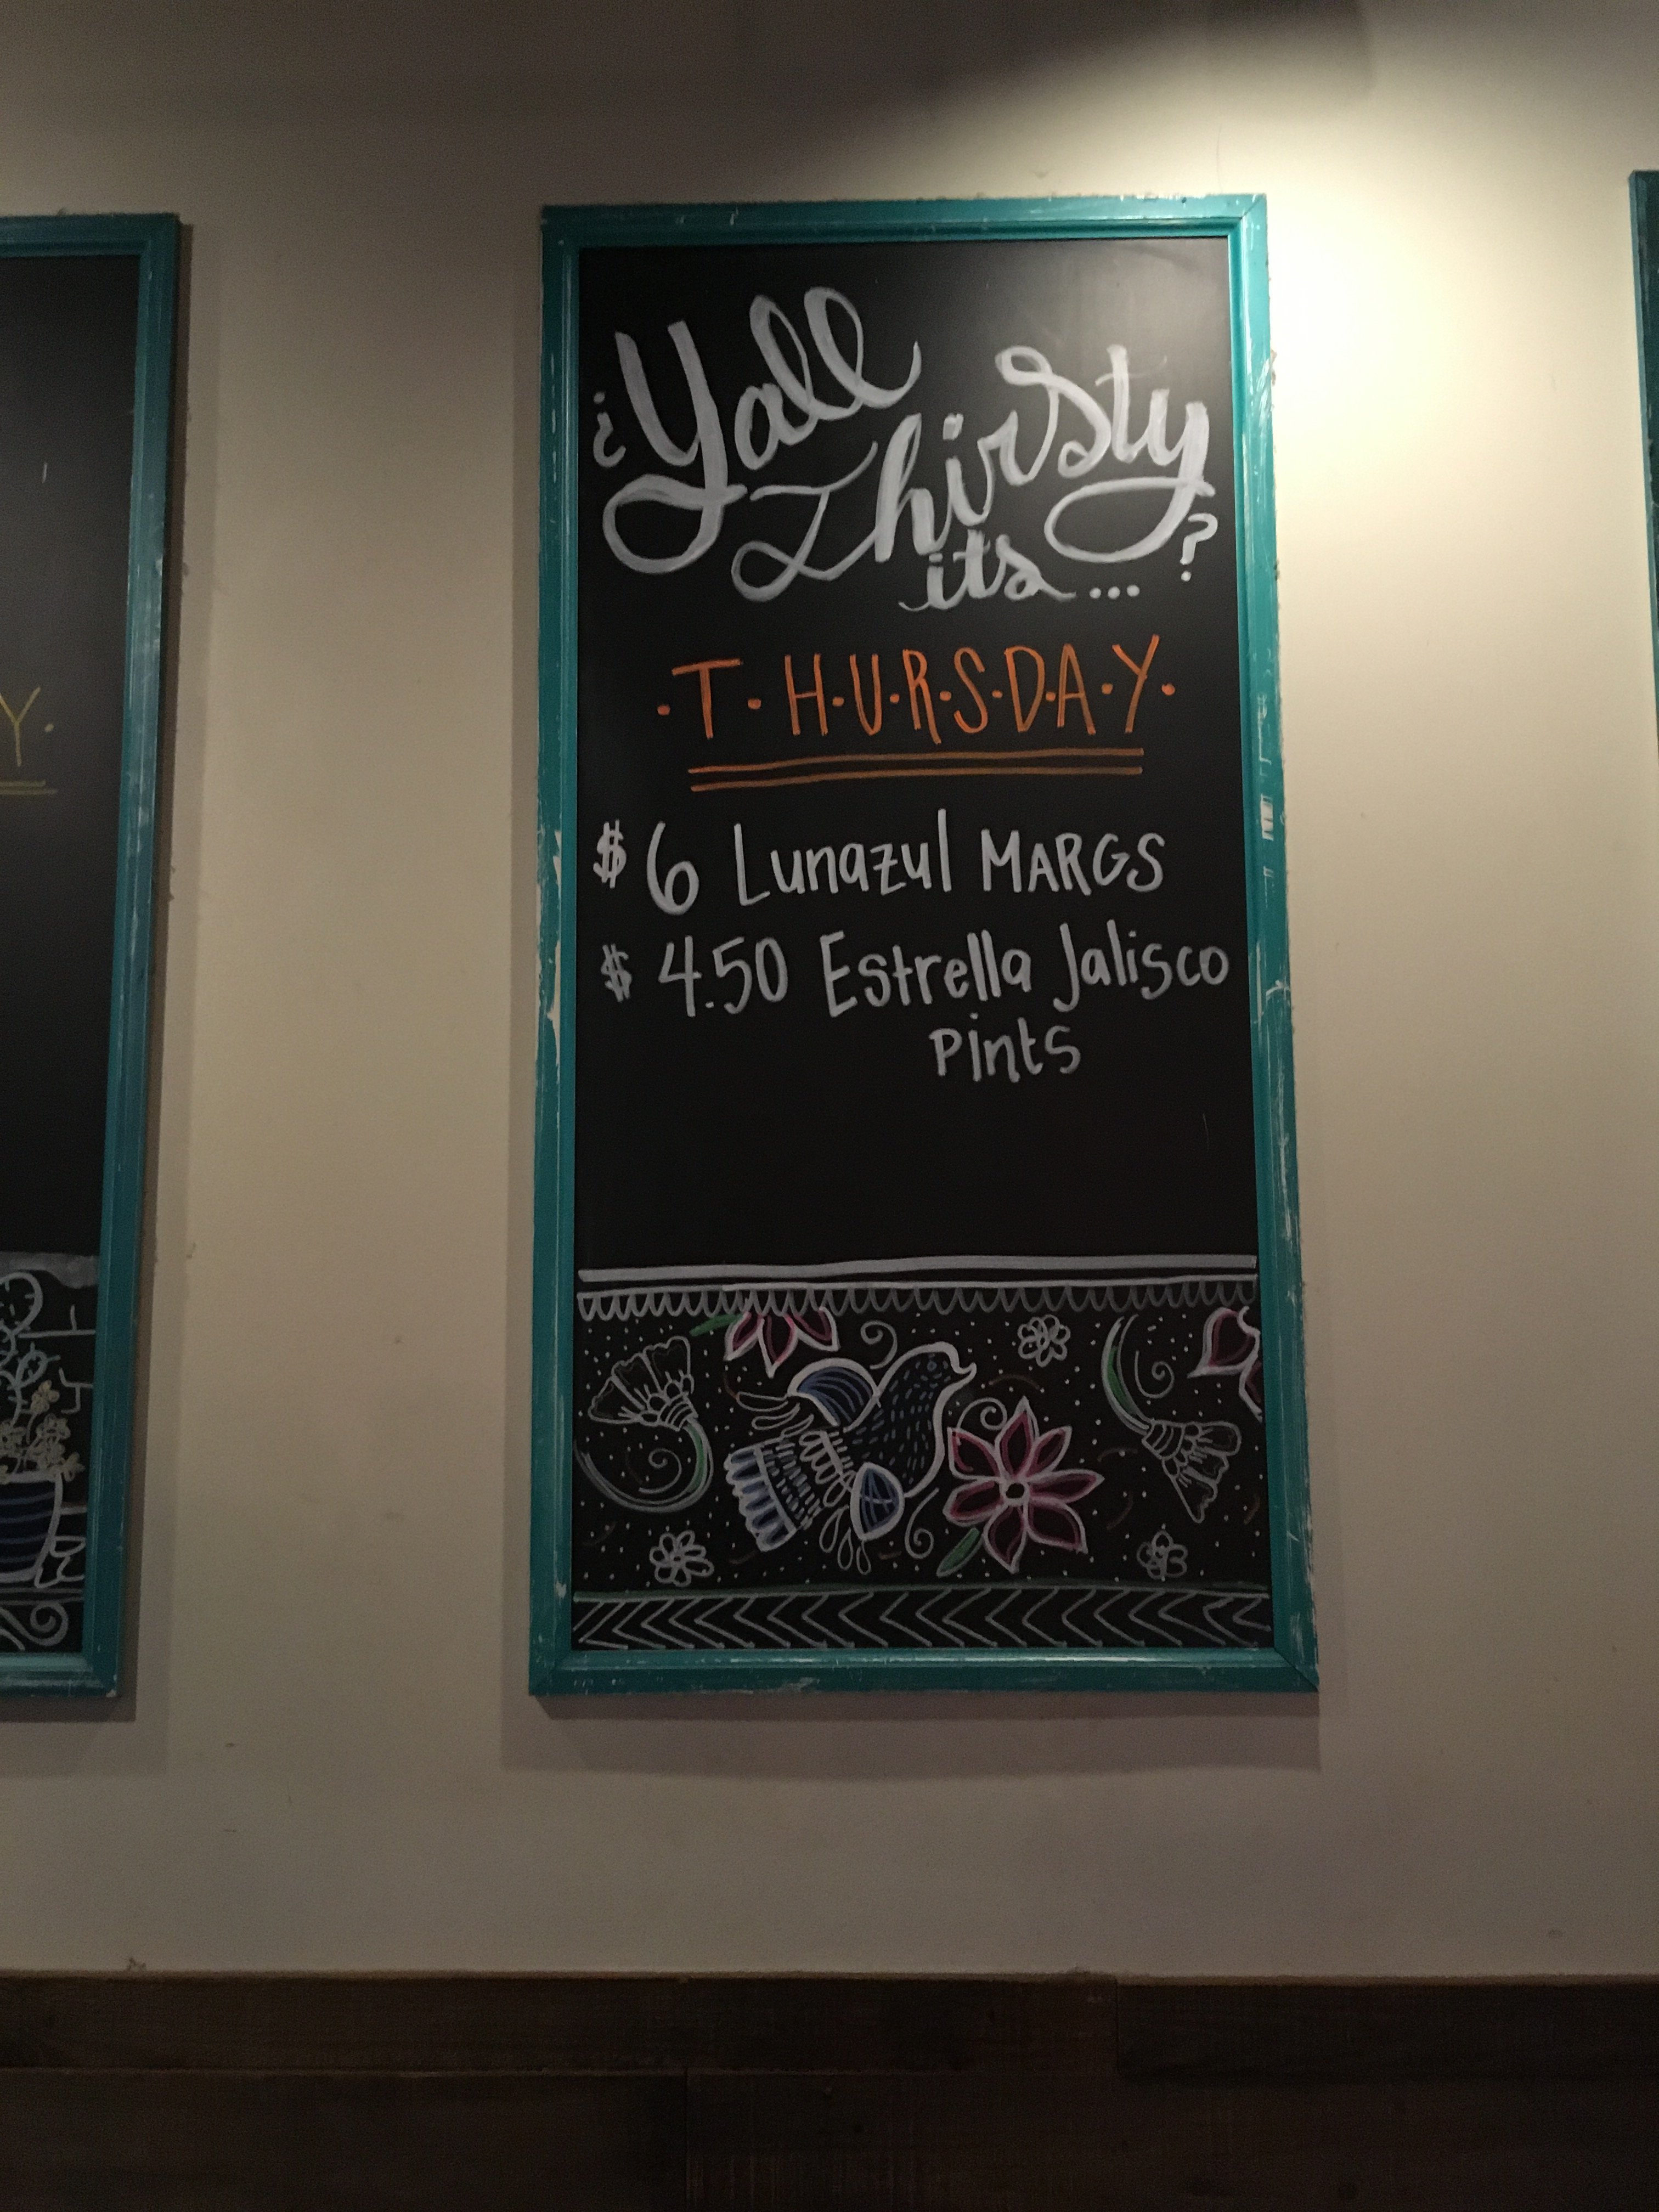 ¿Yall
Thirsty?
its...
·T·H·U·R·S·D·A·Y·
$6 Lunazul MARGS
$4.50 Estrella Jalisco
Pints
Y.